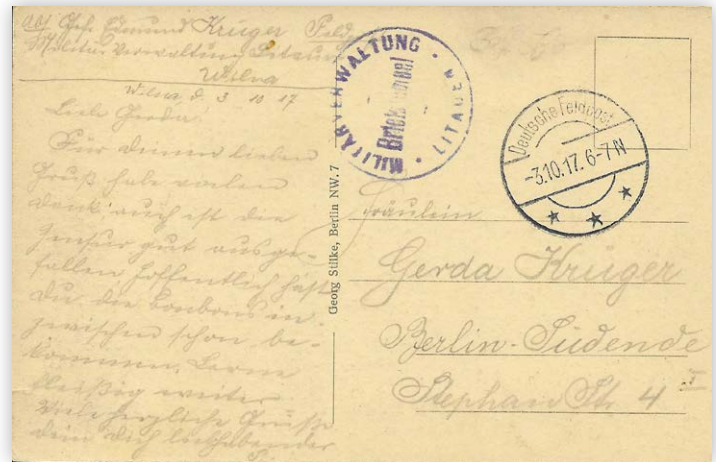 Abs. Gefr. Edmund Krüger Feld
Militär Verwaltung Litauen
Wilna
Wilna d. 3 10 17
Liebe Gerda!
Für deinen lieben
Gruß habe vielen
Dank auch ist die
Zensur gut ausge-
fallen hoffentlich hast
Du die Bonbons in-
zwischen schon be-
kommen. Lerne
fleißig weiter
Viele herzliche Grüße
Dein Dich liebhabender
MILITÄRVERWALTUNG · LITAUEN ·
Briefstempel
Deutsche Feldpost
-3.10.17. 6-7 N
Georg Stilke, Berlin NW. 7
Fräulein
Gerda Krüger
Berlin-Südende
Stephan Str. 4 I